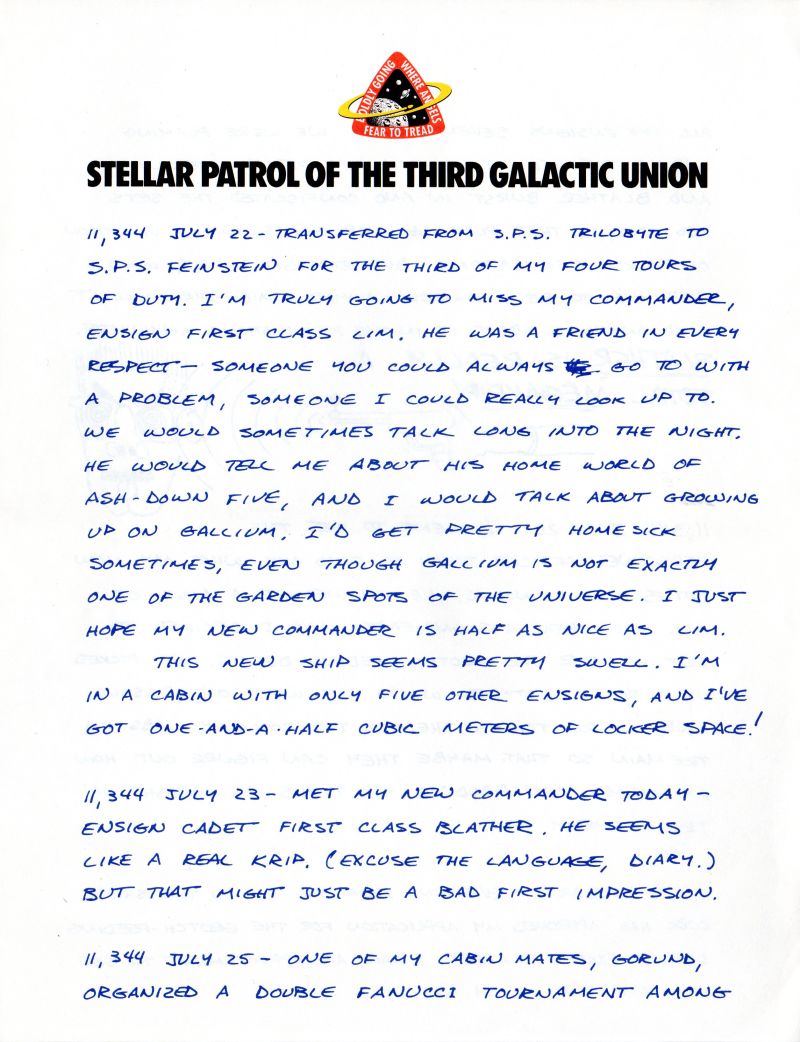 BOLDLY GOING WHERE ANGELS
FEAR TO TREAD
STELLAR PATROL OF THE THIRD GALACTIC UNION
11,344 JULY 22 - TRANSFERRED FROM S.P.S. TRILOBYTE TO
S.P.S. FEINSTEIN FOR THE THIRD OF MY FOUR TOURS
OF DUTY. I'M TRULY GOING TO MISS MY COMMANDER,
ENSIGN FIRST CLASS LIM. HE WAS A FRIEND IN EVERY
RESPECT - SOMEONE YOU COULD ALWAYS GO TO WITH
A PROBLEM, SOMEONE I COULD REALLY LOOK UP TO.
WE WOULD SOMETIMES TALK LONG INTO THE NIGHT.
HE WOULD TELL ME ABOUT HIS HOME WORLD OF
ASH-DOWN FIVE, AND I WOULD TALK ABOUT GROWING
UP ON GALLIUM. I'D GET PRETTY HOMESICK
SOMETIMES, EVEN THOUGH GALLIUM IS NOT EXACTLY
ONE OF THE GARDEN SPOTS OF THE UNIVERSE. I JUST
HOPE MY NEW COMMANDER IS HALF AS NICE AS LIM.
THIS NEW SHIP SEEMS PRETTY SWELL. I'M
IN A CABIN WITH ONLY FIVE OTHER ENSIGNS, AND I'VE
GOT ONE-AND-A-HALF CUBIC METERS OF LOCKER SPACE!
11,344 JULY 23 - MET MY NEW COMMANDER TODAY -
ENSIGN CADET FIRST CLASS BLATHER. HE SEEMS
LIKE A REAL KRIP. (EXCUSE THE LANGUAGE, DIARY.)
BUT THAT MIGHT JUST BE A BAD FIRST IMPRESSION.
11,344 JULY 25 - ONE OF MY CABIN MATES, GORUND,
ORGANIZED A DOUBLE FANUCCI TOURNAMENT AMONG